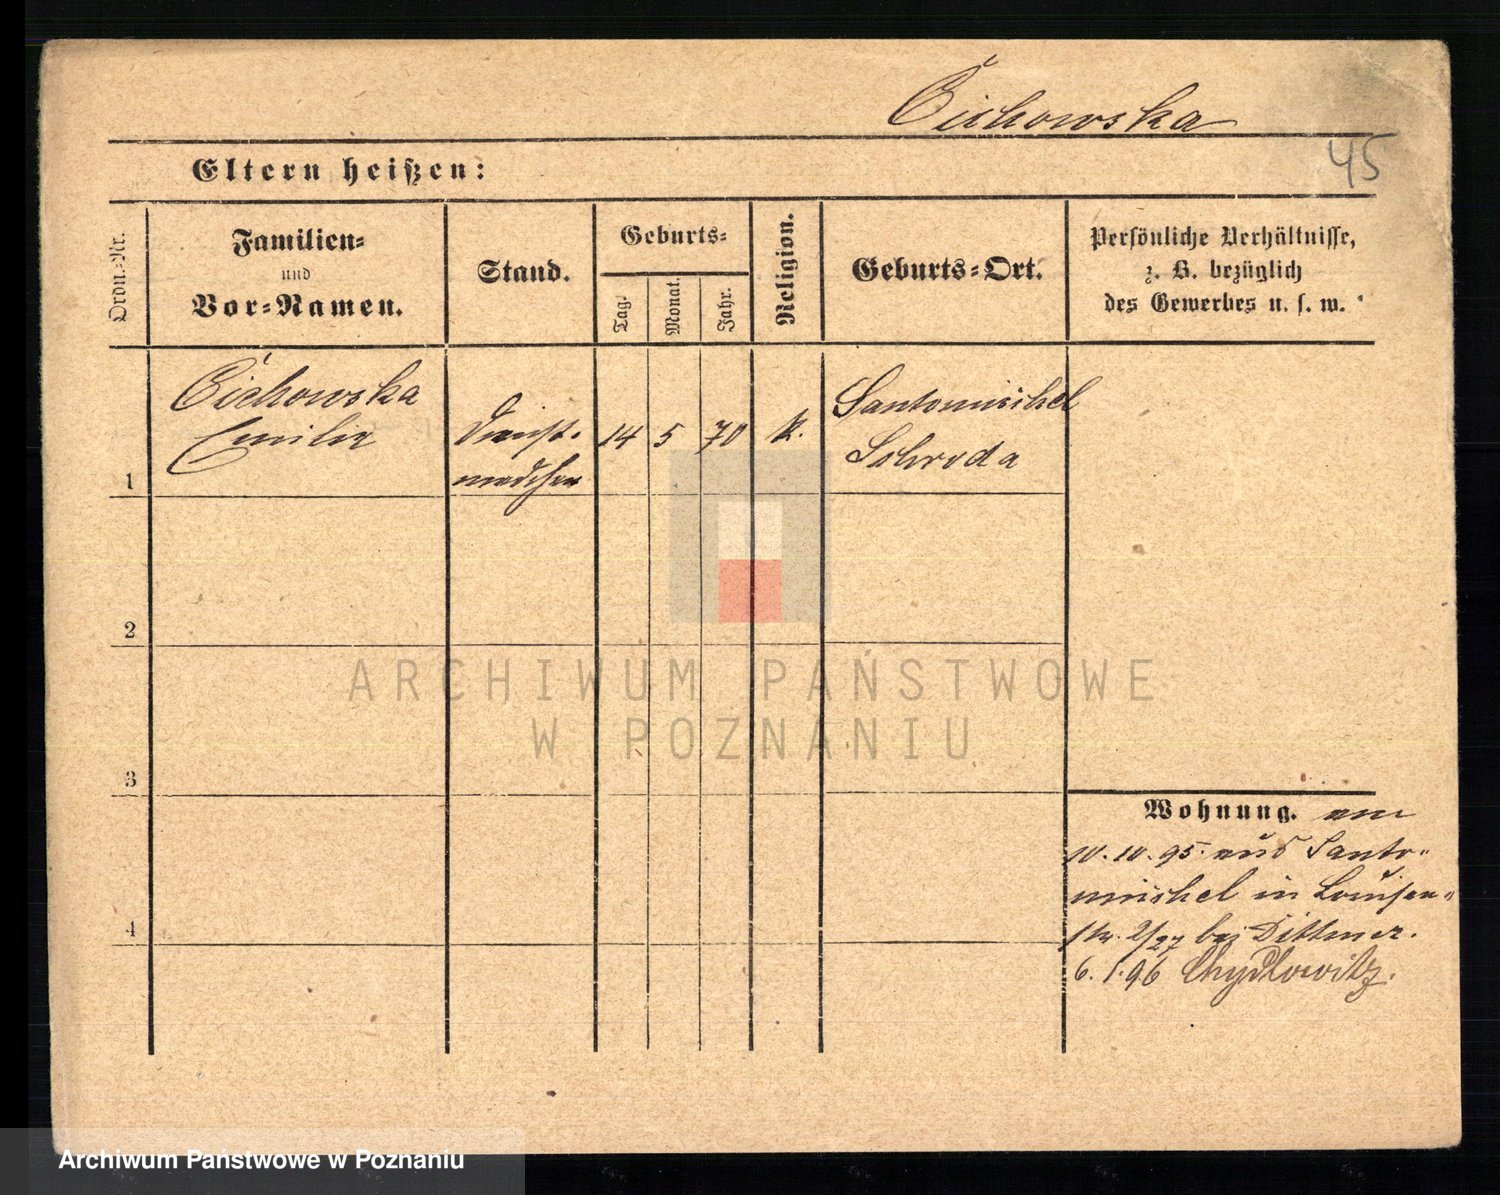 Cichowska
45
Eltern heißen:
Ordn.=Nr.
Familien=
und
Vor=Namen.
Stand.
Geburts=
Tag.
Monat.
Jahr.
Religion.
Geburts=Ort.
Persönliche Verhältnisse,
z. B. bezüglich
des Gewerbes u. s. w.
1
Cichowska
Emilie
Dienst-
mädchen
14 5 70 k.
Santomischel
Schroda
2
3
4
Wohnung. am
10.10.95. aus Santo-
mischel in Louisen-
str. 2/27 bei Dittmer.
6.1.96 Chydlowitz.
ARCHIWUM PAŃSTWOWE
W POZNANIU
Archiwum Państwowe w Poznaniu